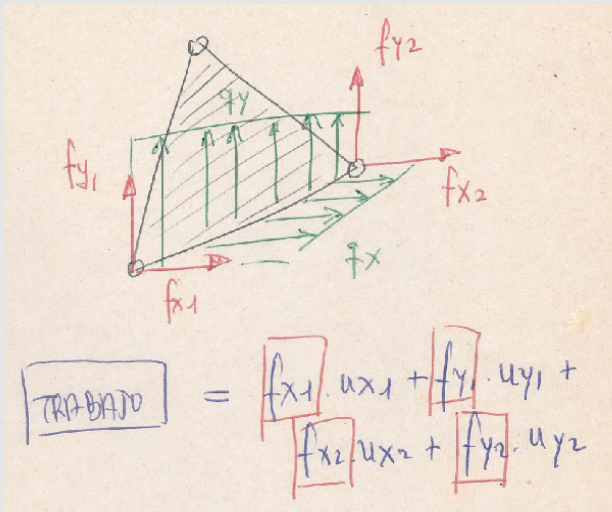 fy2
qy
fy1
fx2
qx
fx1
TRABAJO = fx1 . ux1 + fy1 . uy1 +
fx2 . ux2 + fy2 . uy2